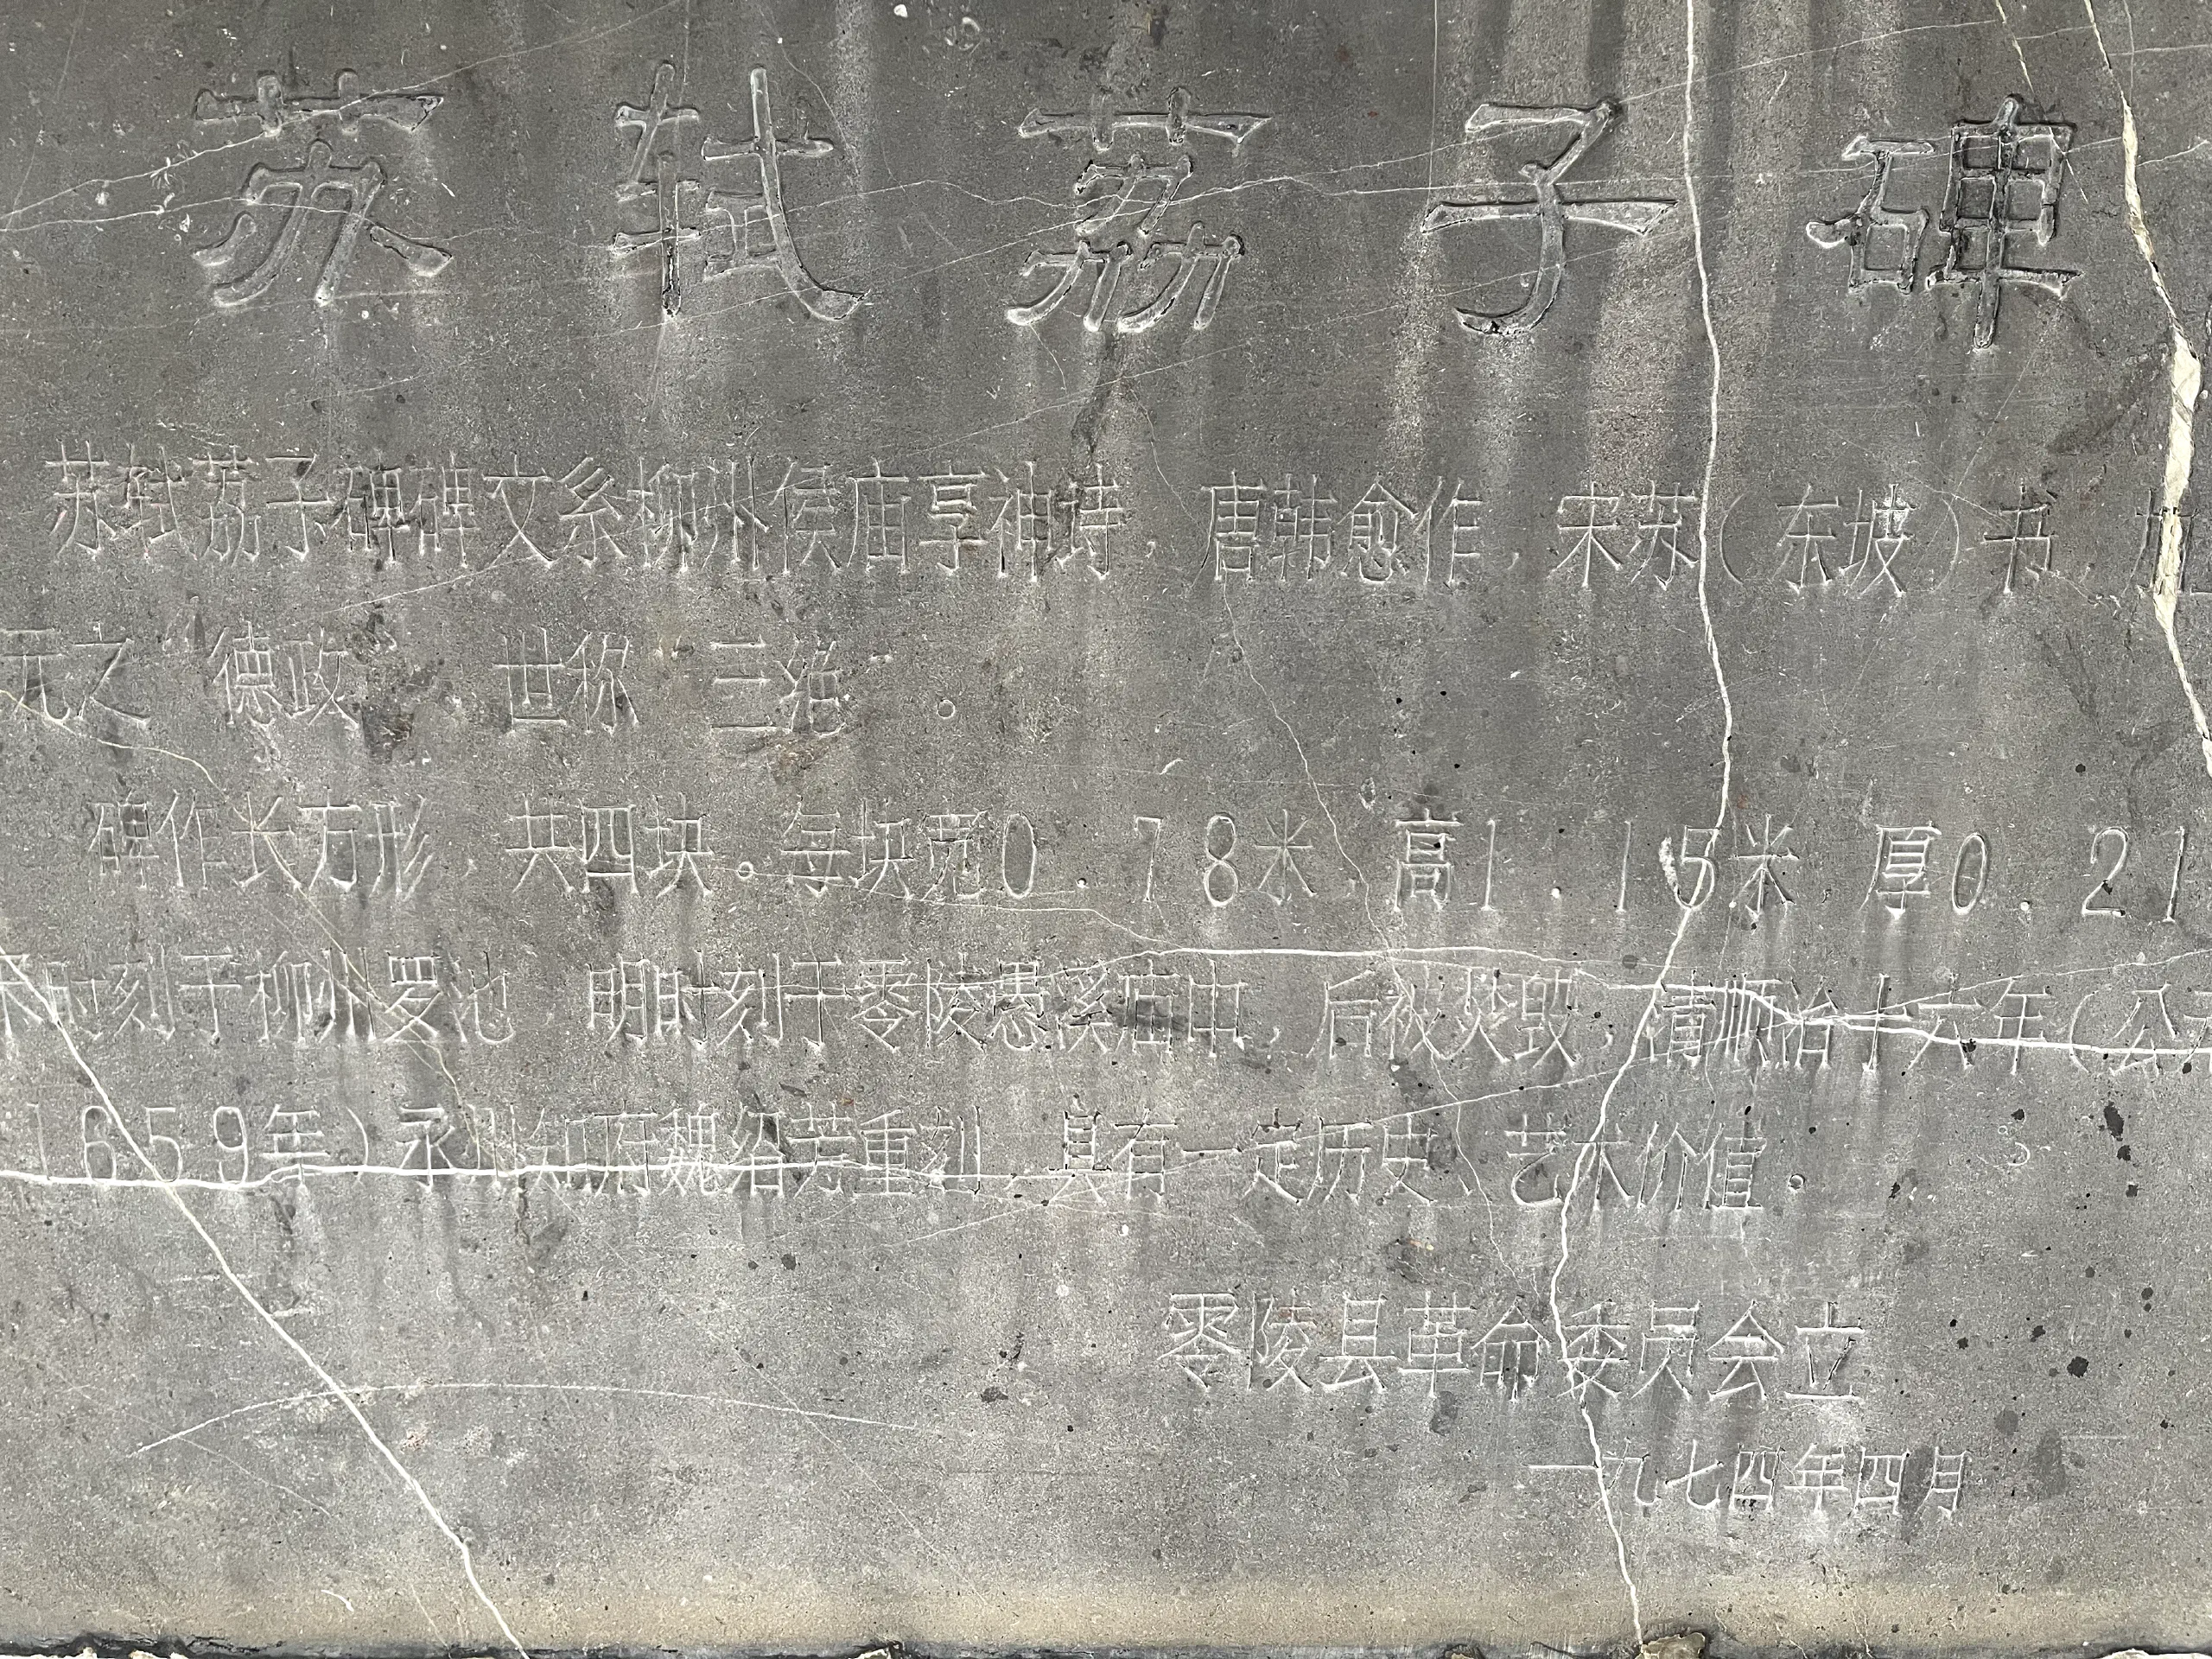 苏轼荔子碑
苏轼荔子碑碑文系柳州侯庙享神诗，唐韩愈作，宋苏（东坡）书，加
元之“德政”，世称“三绝”。
碑作长方形，共四块。每块宽0.78米，高1.15米，厚0.21
宋时刻于柳州罗池，明时刻于零陵愚溪庙中，后被焚毁，清顺治十六年（公
1659年）永州知府魏绍芳重刻，具有一定历史、艺术价值。
零陵县革命委员会立
一九七四年四月